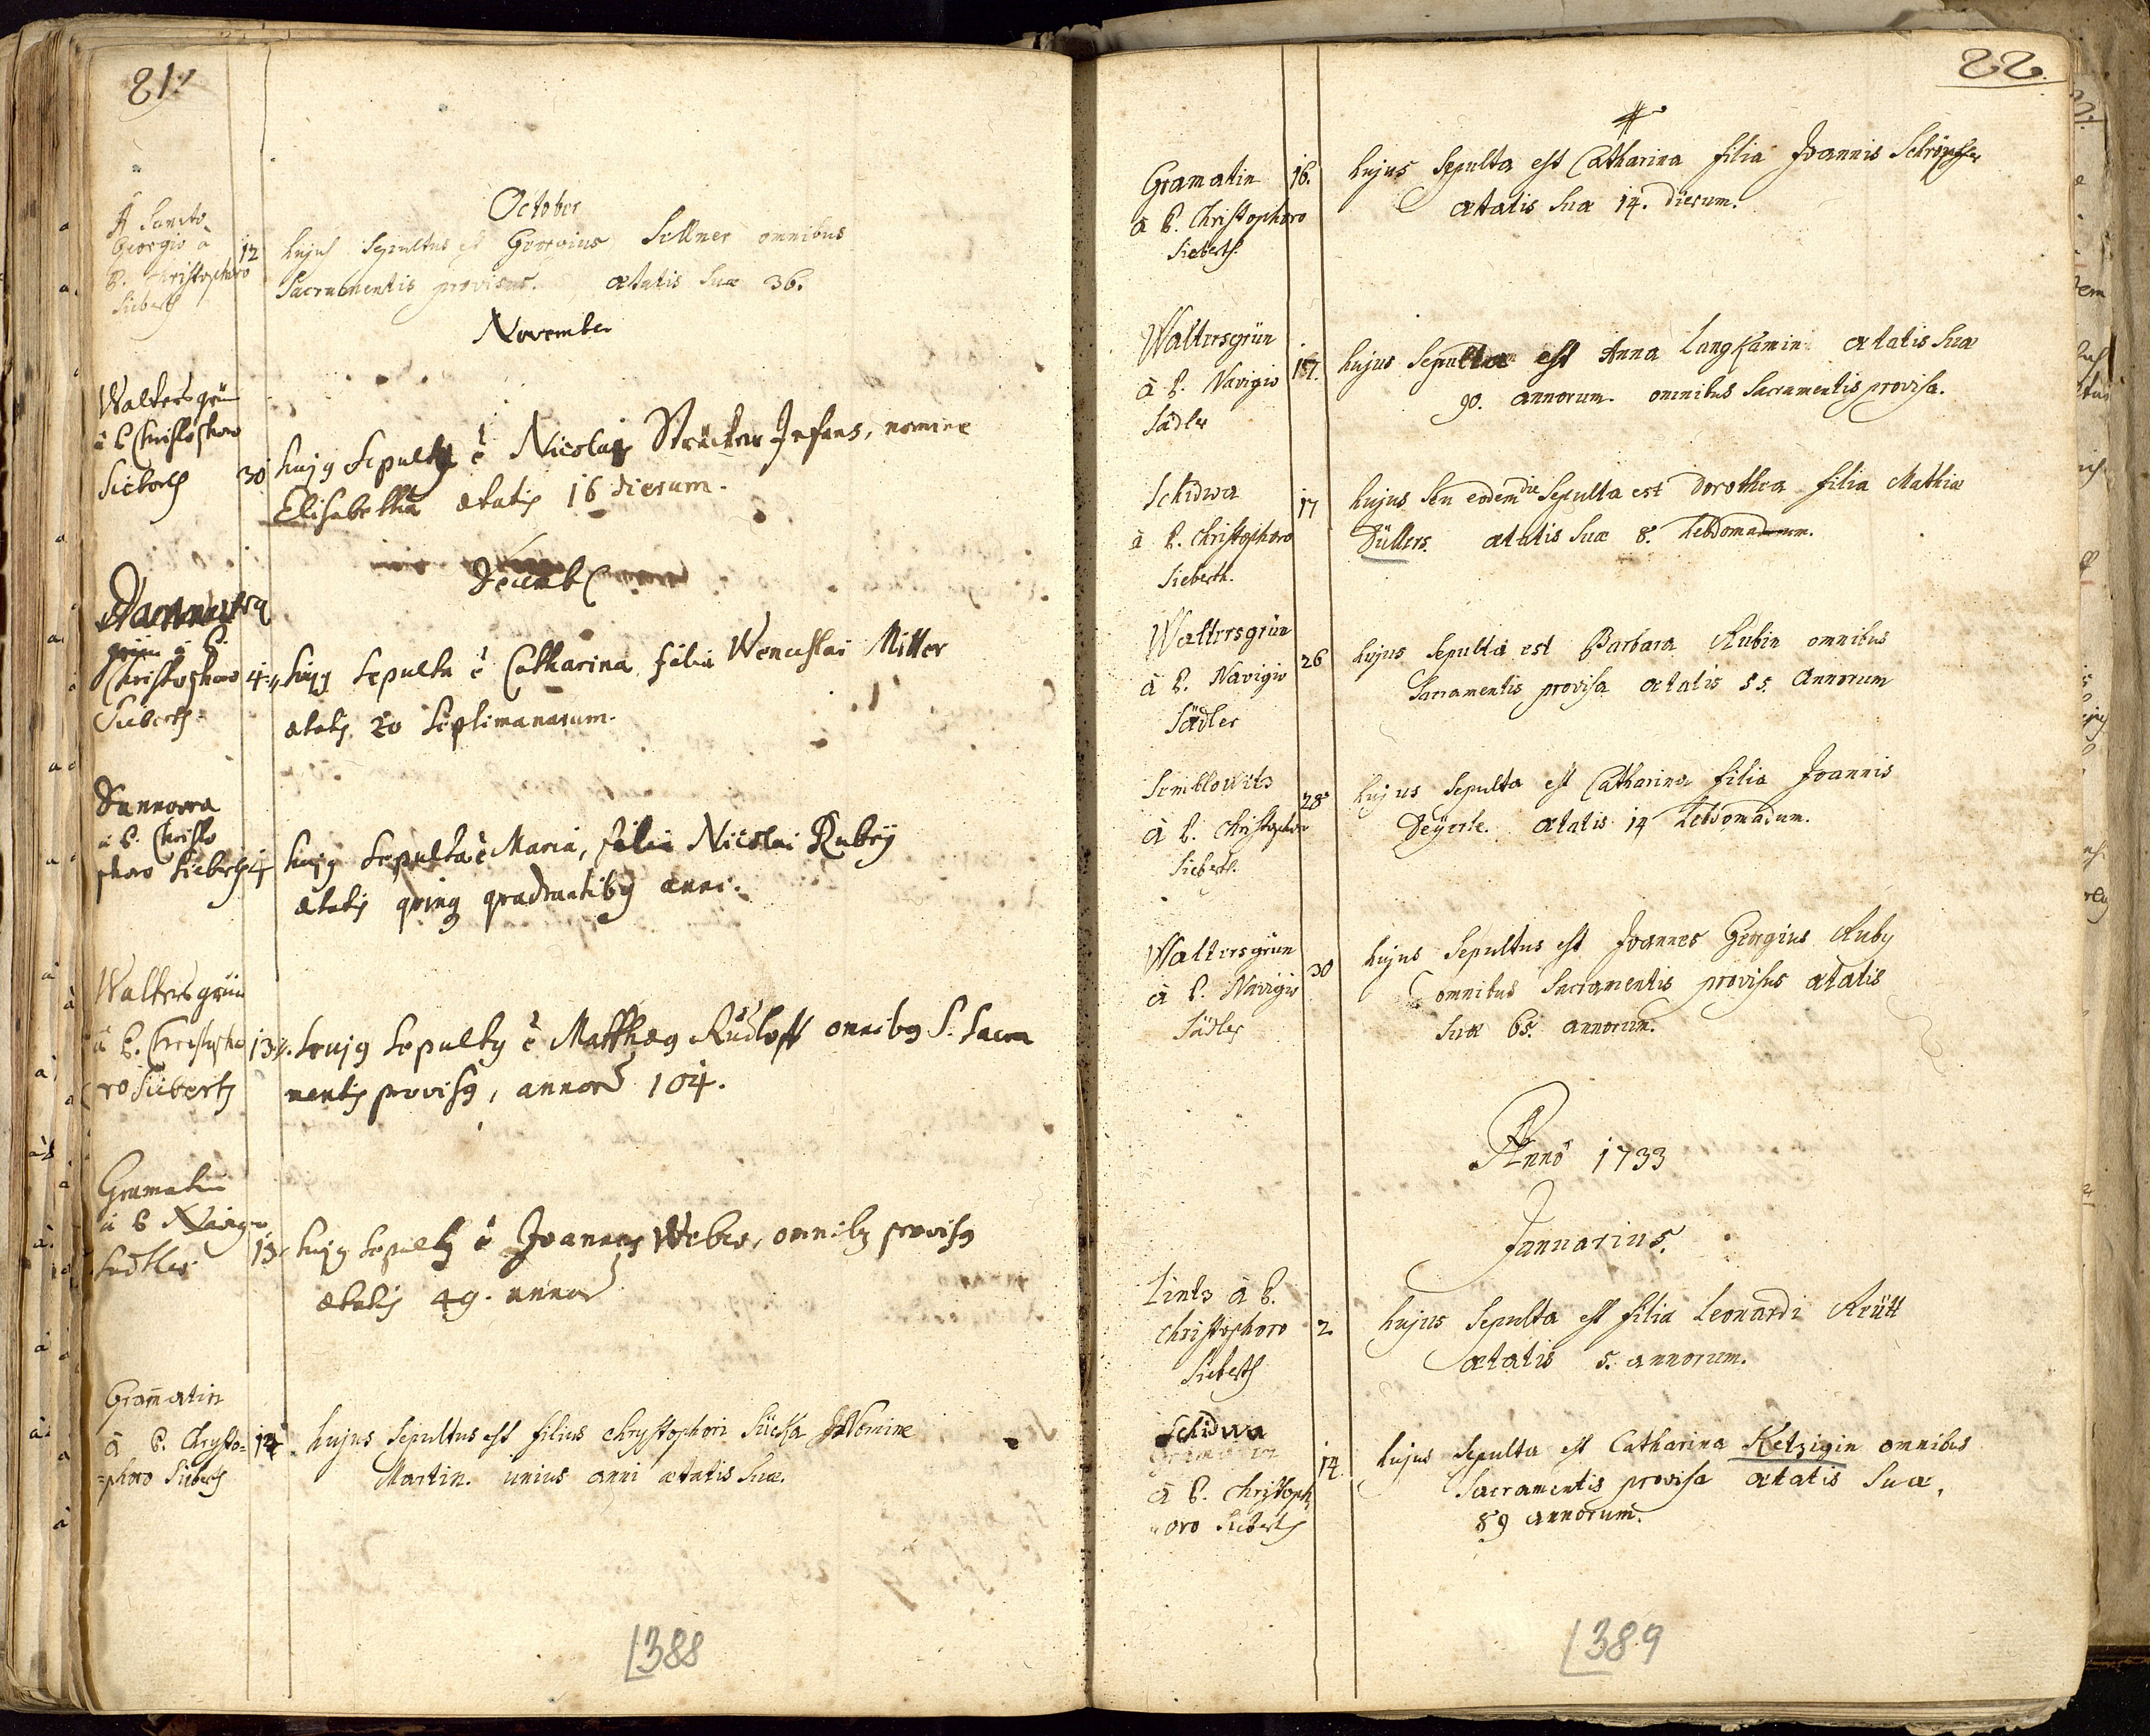 21.
October
A Sancto
Georgio à
P. Christophoro
Sieberth
12
hujus Sepultus est Georgius Sellner omnibus
Sacramentis provisus. ætatis Suæ 36.
November
Waltersgrün
à P Christophoro
Sieberth
30
hujg Sepultg ē Nicolai Infans, nomine
Elisabetha ætatis 16 dierum.
Decemb
grün à P.
Christophoro
Sieberth
4
hujg Sepulta ē Catharina filia Wenceslai Miller
ætatis 20 Septimanarum.
Dannowa
à P. Christo
phoro Sieberth
hujg Sepulta ē Maria, filia Nicolai Rubÿ
ætatis quinq quadrantibg anni.
Waltersgrün
à P. Christopho
ro Sieberth
13
hujg Sepultg ē Matthæg Rudloff omnibg S. Sacra
mentis provisg, annor 104.
Gramatin
à P Navigio
Sadtler
13
hujg Sepultg ē Joannes Weber, omnibg provisg
ætatis 49. annor
Gram̄atin
à P. Chrysto=
=phoro Sieberth
14
hujus Sepultus est filius Chrystophori Nomine
Martin. unius anni ætatis Suæ.
1388
22.
Gramatin
à P. Christophoro
Sieberth
16.
hujus Sepulta est Catharina filia Joannis
ætatis Suæ 14. dierum.
Waltersgrün
à P. Navigio
Sädler
17.
hujus Sepulta est Anna Langhamin ætatis Suæ
90. annorum. omnibus Sacramentis provisa.
Schidwa
à P. Christophoro
Sieberth.
17
hujus Seu eodem die Sepulta est Dorothea filia Mathiæ
Düllers. ætatis Suæ 8. hebdomadum.
Waltersgrün
à P. Navigio
Sädler
26
hujus Sepulta est Barbara Rubin omnibus
Sacramentis provisa ætatis 55. Annorum
Semblowitz
à P. Christophoro
Sieberth.
28
hujus Sepulta est Catharina filia Joannis
Deÿerle. ætatis 14 hebdomadum.
Waltersgrün
à P. Navigio
Sädler
30
hujus Sepultus est Joannes Georgius Ruby
omnibus Sacramentis provisus ætatis
Suæ 65. annorum.
Anno 1733
Januarius.
Lintz à P.
Christophoro
Sieberth
2
hujus Sepulta est filia Leonardi Krütt
ætatis 5. annorum.
Schidwa
à P. Christoph
oro Sieberth
14.
hujus Sepulta est Catharina Ketzigin omnibus
Sacramentis provisa ætatis Suæ,
89 annorum.
1389